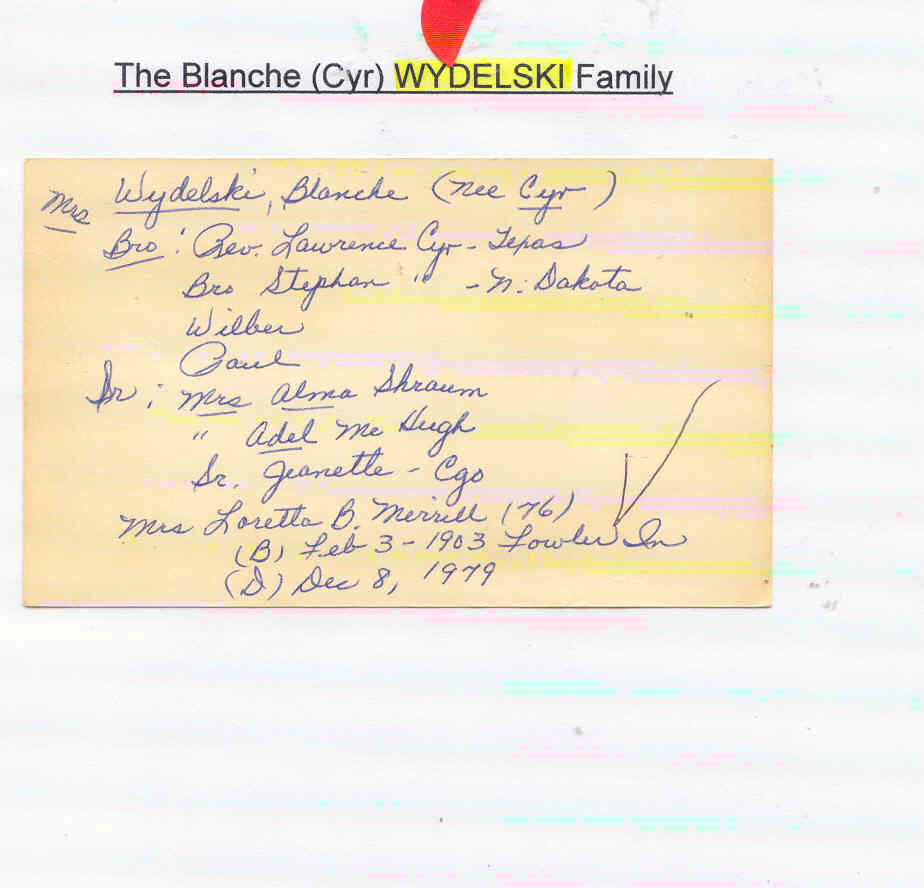 The Blanche (Cyr) WYDELSKI Family
Mrs Wydelski, Blanche (nee Cyr)
Bro: Rev. Lawrence Cyr - Texas
Bro Stephan " - N. Dakota
Wilber
Paul
Sr: Mrs Alma Shraum
" Adel Mc Hugh
Sr. Jeanette - Cgo
Mrs Loretta B. Merrill (76)
(B) Feb 3 - 1903 Fowler In
(D) Dec 8, 1979